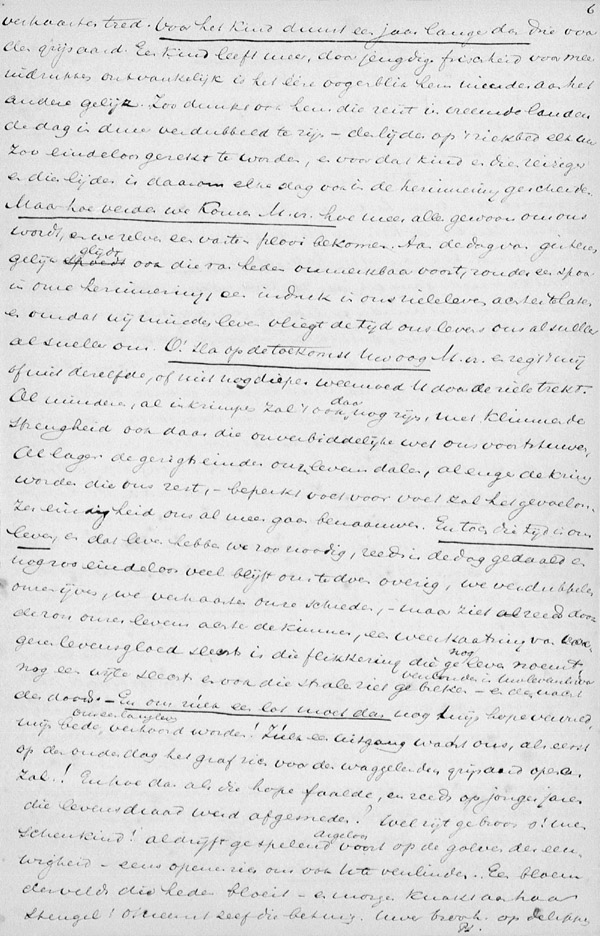 6
verhaaster tred. Voor het kind duurt een jaar langer dan drie voor
den grijsaard. Een kind leeft meer, door jeugdige frischheid voor meer
indrukken ontvankelijk is het ééne oogenblik hem minder aan het
andere gelijk. Zoo dunkt ook hem die reist in vreemde landen
de dag in duur verdubbeld te zijn – den lijder op 't ziekbed elk uur
Zoo eindeloos gerekt te worden, en voor dat kind en dien reiziger
en dien lijder is daarom elke dag ook in de herinnering gescheiden
Maar hoe verder we komen M. vr. hoe meer alles gewoon om ons
wordt, en we zelven een vasten plooi bekomen. Aan de dag van gisteren
gelijk spoedt glijdt ook die van heden onmerkbaar voort, zonder een spoor
in onze herinnering, een indruk in ons zieleleven achter te laten
en omdat wij minder leven vliegt de tijd ons levens ons al sneller
al sneller om. O! sla op de toekomst Uw oog M. vr. en zegt mij
of niet dezelfde, of niet nog dieper weemoed U door de ziele trekt.
Al minderen, al inkrimpen zal 't ook daar nog zijn, met klimmende
strengheid ook daar die onverbiddelijke wet ons voortstuwen,
Al lager de gezigteinder onzes levens dalen, al enger de kring
worden die ons rest, – beperkt voet voor voet zal het gevoel onzer
eindigheid ons al meer gaan benaauwen. En toch die tijd is ons
leven, en dat leven hebben we zoo noodig, reeds is de dag gedaald en
nog zoo eindeloos veel blijft ons te doen overig, we verdubbelen
onzen ijver, we verhaasten onze schreden, – maar ziet alreeds dook
de zon onzes levens achter de kimmen, een weerkaatsing van
levensgloed slechts is die flikkering die ge nog leven noemt
nog een wijle slechts en ook die strale ziet ge breken – en de nacht
des doods – En ons aller een lot moet dan nog mijn hope vervuld,
mijn bede verhoord worden! Zulk een uitgang wacht ons, als eerst
op den ouden dag het graf zich voor den waggelenden grijsaard openen
zal.! En hoe dan als die hope faalde, en reeds op jonger jaren
die levensdraad werd afgesneden? Wel zijt ge broos o! men
schenkind! al drijft ge spelend argeloos voort op de golven der eeu
wigheid – eens openen zich om ook U te verslinden. Een bloem
des velds die heden bloeit – en morgen knakt aan haar
stengel!